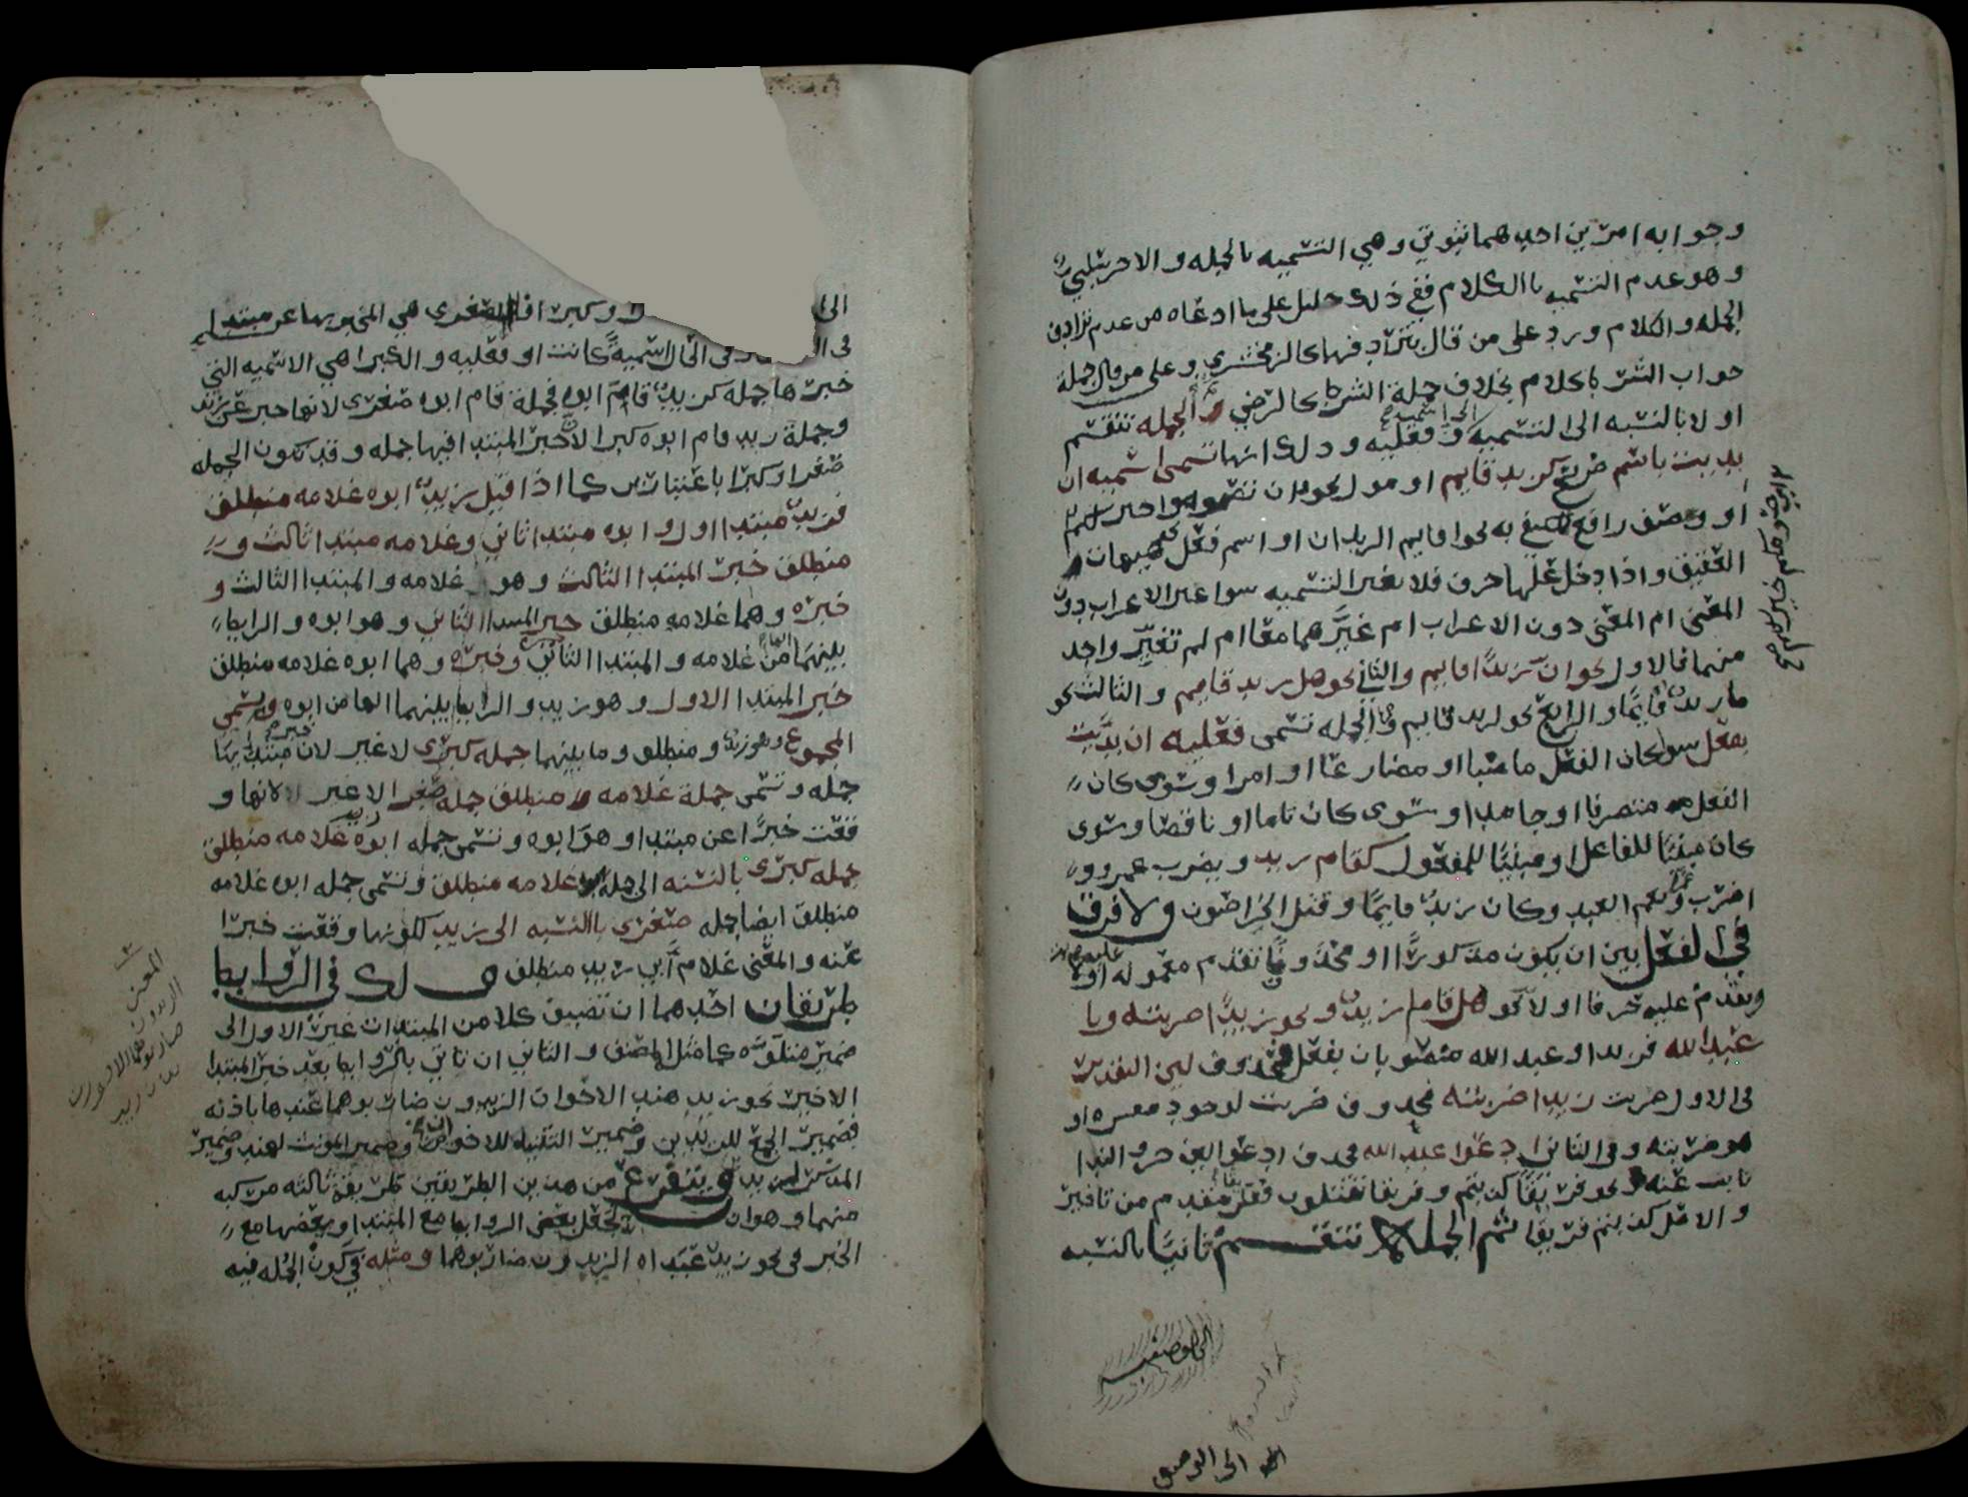 وجوابه امرين احدهما ثبوتي وهي التسميه بالجمله والاخر سلبي
وهو عدم التسميه باالكلام ففي ذلك دليل على ما ادعاه من عدم ترادف
الجمله والكلام ورد على من قال بترادفهما كالزمخشري وعلى من قال جملة
جواب الشرط كلام بخلاف جملة الشرط كالرضي والجمله تنقسم
اولا بالنسبه الى التسميه الى اسميه وفعليه وذلك انها تسمى اسميه ان
بديت باسم صريح كزيد قايم او مول نحو وان تصوموا خير لكم
او وصف رافع لمكتفى به نحو اقايم الزيدان او اسم فعل نحو هيهات
العقيق واذا دخل عليها حرف فلا يغير التسميه سوا غير الاعراب دون
المعنى ام المعنى دون الاعراب ام غيرهما معا ام لم تغير واحد
منهما فالاول نحو ان زيدا قايم والثاني نحو هل زيد قايم والثالث نحو
ما زيد قايما والرابع نحو لزيد قايم والجمله تسمى فعليه ان بديت
بفعل سوا كان الفعل ماضيا او مضارعا او امرا وسوى كان
الفعل متصرفا او جامدا وسوى كان تاما او ناقصا وسوى
كان مبنيا للفاعل او مبنيا للمفعول كقام زيد ويضرب عمرو و
اضرب ونعم العبد وكان زيد قايما وقتل الخراصون ولا فرق
في الفعل بين ان يكون مذكورا او محذوفا تقدم معموله عليه او
وتقدم عليه حرفا اولا نحو هل قام زيد ونحو زيدا ضربته ويا
عبد الله فزيدا وعبد الله منصوبان بفعل محذوف لان التقدير
في الاول ضربت زيدا ضربته فحذف ضربت لوجود مفسره او
هو ضربته وفي الثاني ادعوا عبد الله فحذف ادعوا لان حرف الندا
نايب عنه ونحو فريقا كذبتم وفريقا تقتلون ففريقا مقدم من تاخير
والاصل كذبتم فريقا ثم الجمله تنقسم ثانيا بالنسبه
الى الوصفيه
الى الوصف
وكبرى فالصغرى هي المخبر بها عن مبتدا
في الحال اسمية كانت او فعليه والكبرا هي الاسميه التي
خبرها جمله كزيد قام ابوه فجملة قام ابوه صغرى لانها خبر عن زيد
وجملة زيد قام ابوه كبرا لان خبر المبتدا فيها جمله وقد تكون الجمله
صغرا وكبرا باعتبارين كما اذا قيل زيد ابوه غلامه منطلق
فزيد مبتدا اول وابوه مبتدا ثاني وغلامه مبتدا ثالث و
منطلق خبر المبتدا الثالث وهو غلامه والمبتدا الثالث و
خبره وهما غلامه منطلق خبر المبتدا الثاني وهو ابوه والرابط
بينهما الها من غلامه والمبتدا الثاني وخبره وهما ابوه غلامه منطلق
خبر المبتدا الاول وهو زيد والرابط بينهما الها من ابوه ويسمى
المجموع وهو زيد ومنطلق وما بينهما جمله كبرى لا غير لان خبر مبتدايها
جمله وتسمى جملة غلامه منطلق جملة صغرا لا غير لانها و
قعت خبرا عن مبتدا وهو ابوه وتسمى جمله ابوه غلامه منطلق
جمله كبرى بالنسبه الى جملة غلامه منطلق وتسمى جمله ابوه غلامه
منطلق ايضا جمله صغرى باالنسبه الى زيد لكونها وقعت خبرا
عنه والمعنى غلام ابي زيد منطلق ولك في الروابط
طريقان احدهما ان تضيف كلا من المبتدات غير الاول الى
ضمير متلوه كما مثل المصنف والثاني ان تاتي بالروابط بعد خبر المبتدا
الاخير نحو زيد هند الاخوان الزيدون ضاربوهما عندها باذنه
فضمير الجمع للزيدين وضمير التثنيه للاخوان وضمير المونث لهند وضمير
المذكر لزيد ويتفرع من هذين الطريقين طريقة ثالثه مركبه
منهما وهو ان تجعل بعض الروابط مع المبتدا وبعضها مع
الخبر في نحو زيد عبداه الزيدون ضاربوهما ومثله في كون الجمله فيه